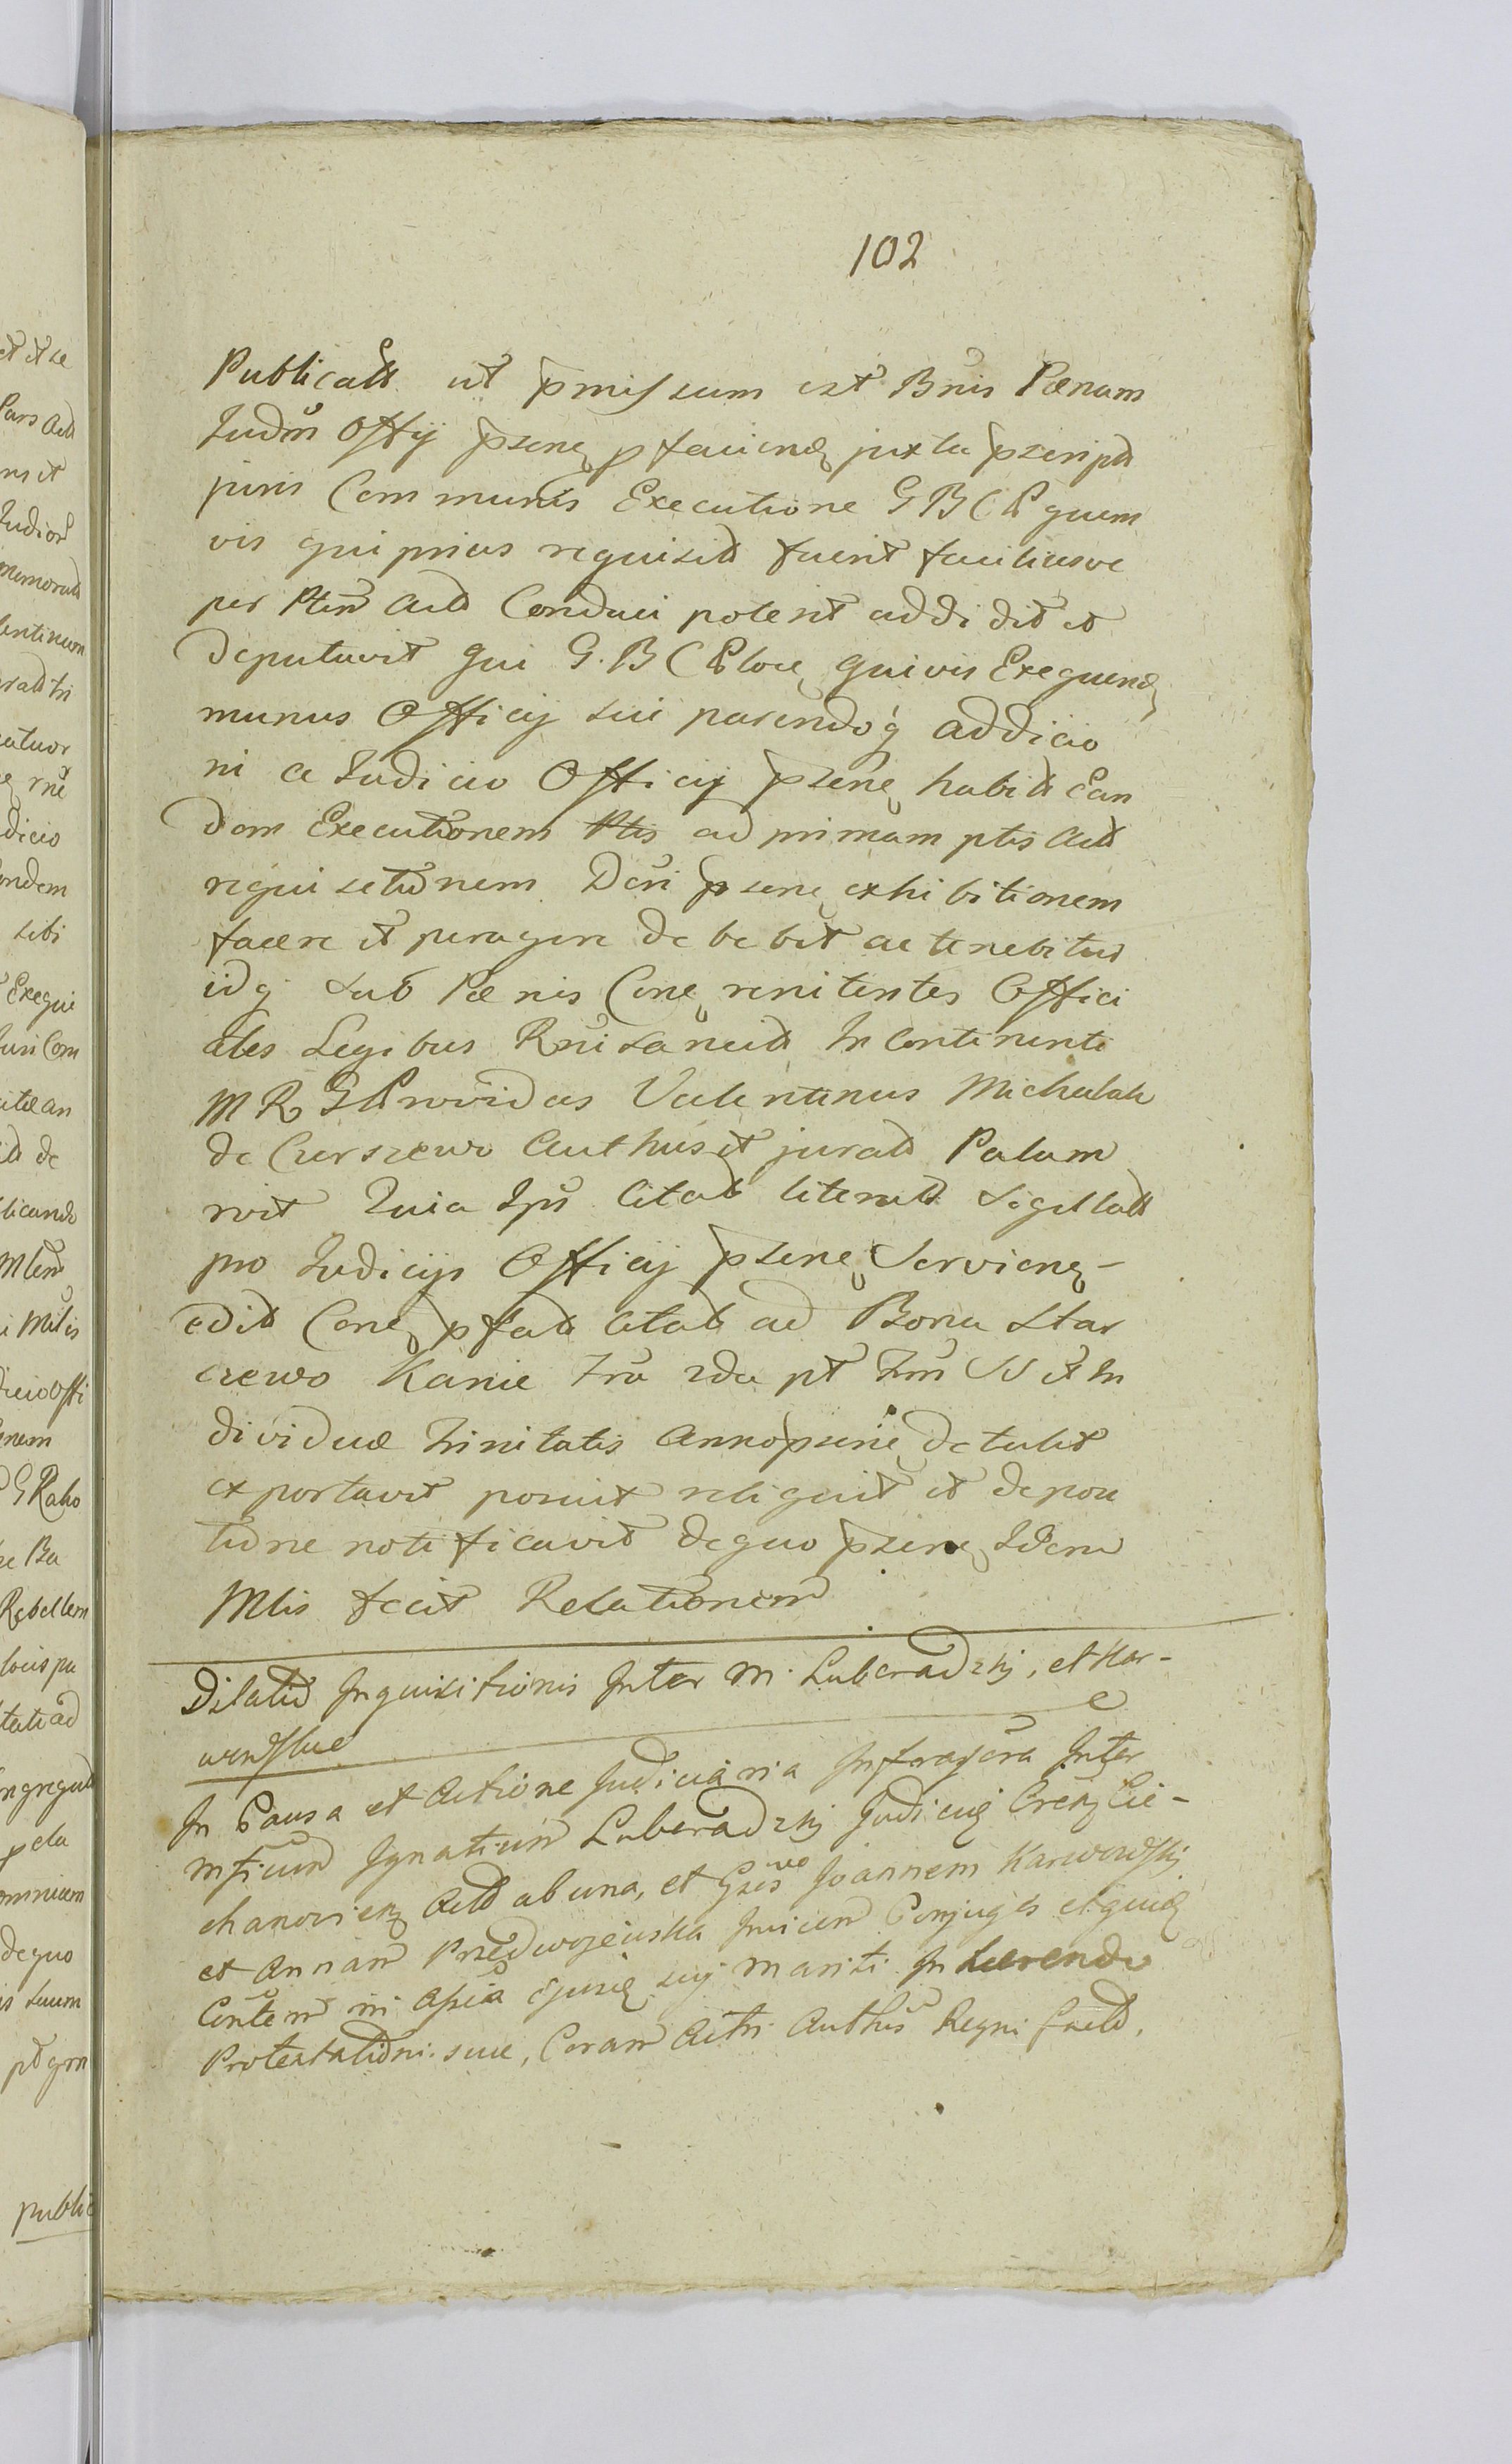 102
Publicatt ut pmissum est Bnis Pænam
Judm Offij psene p faciend juxta pscript
juris Communis Executione G B C P quem
vis qui prius requisitt fuerit faciliusve
per Ptem Actt Conduci poterit addidit et
Deputavit qui G. B C Ploce quivis Exequend
munus Officij sui parendoq addicio
ni ac Judicio Officij psene habitt Ean
dem Executionem Ptis ad primam ptis Actt
requisitionem Dcri psene exhibitionem
facere et peragere debebit ac tenebitur
idq sub Pænis Cone renitentes Offici
ales Legibus Rni sancitt In Continenti
M R G Providus Valentinus Michalak
de Cierszewo Authus et juratt Palam
vit Quia Ips Citatt literatt Sigillatt
pro Judicijs Officij psene Serviene-
edit Cone pfatt Citatt ad Bona Star
czewo Kanie Fra 2da pt Fm SS et In
dividuæ Trinitatis Anno psene detulit
exportavit posuit reliquit et deposi
tione notificavit de quo psene Idem
Mlis fecit Relationem
Dilatio Inquisitionis Inter M. Luberadzkj, et Kar-
wowskie
In Causa et Actione Judiciaria Infrascra Inter
Mficum Ignatium Luberadzkj Judicem Crenz Cie-
chanovien Actt ab una, et Gsos Joannem Karwowskj
et Annam Przedwojewska Invicem Conjuges et quid
Conten in Assia ejusd suj mariti Inhærendo
Protestationi suæ, Coram Actis Authis Regni fact,
et ut se
Pars Actt
ns et
Judior
memoratt
lentinum
dicio
ondem
sibi
Exequi
Juri Com
itt de
licando
Mlem
i Milis
nem
G Rako
Rebellem
locis pu
ngregatt
omnium
de quo
is suum
public